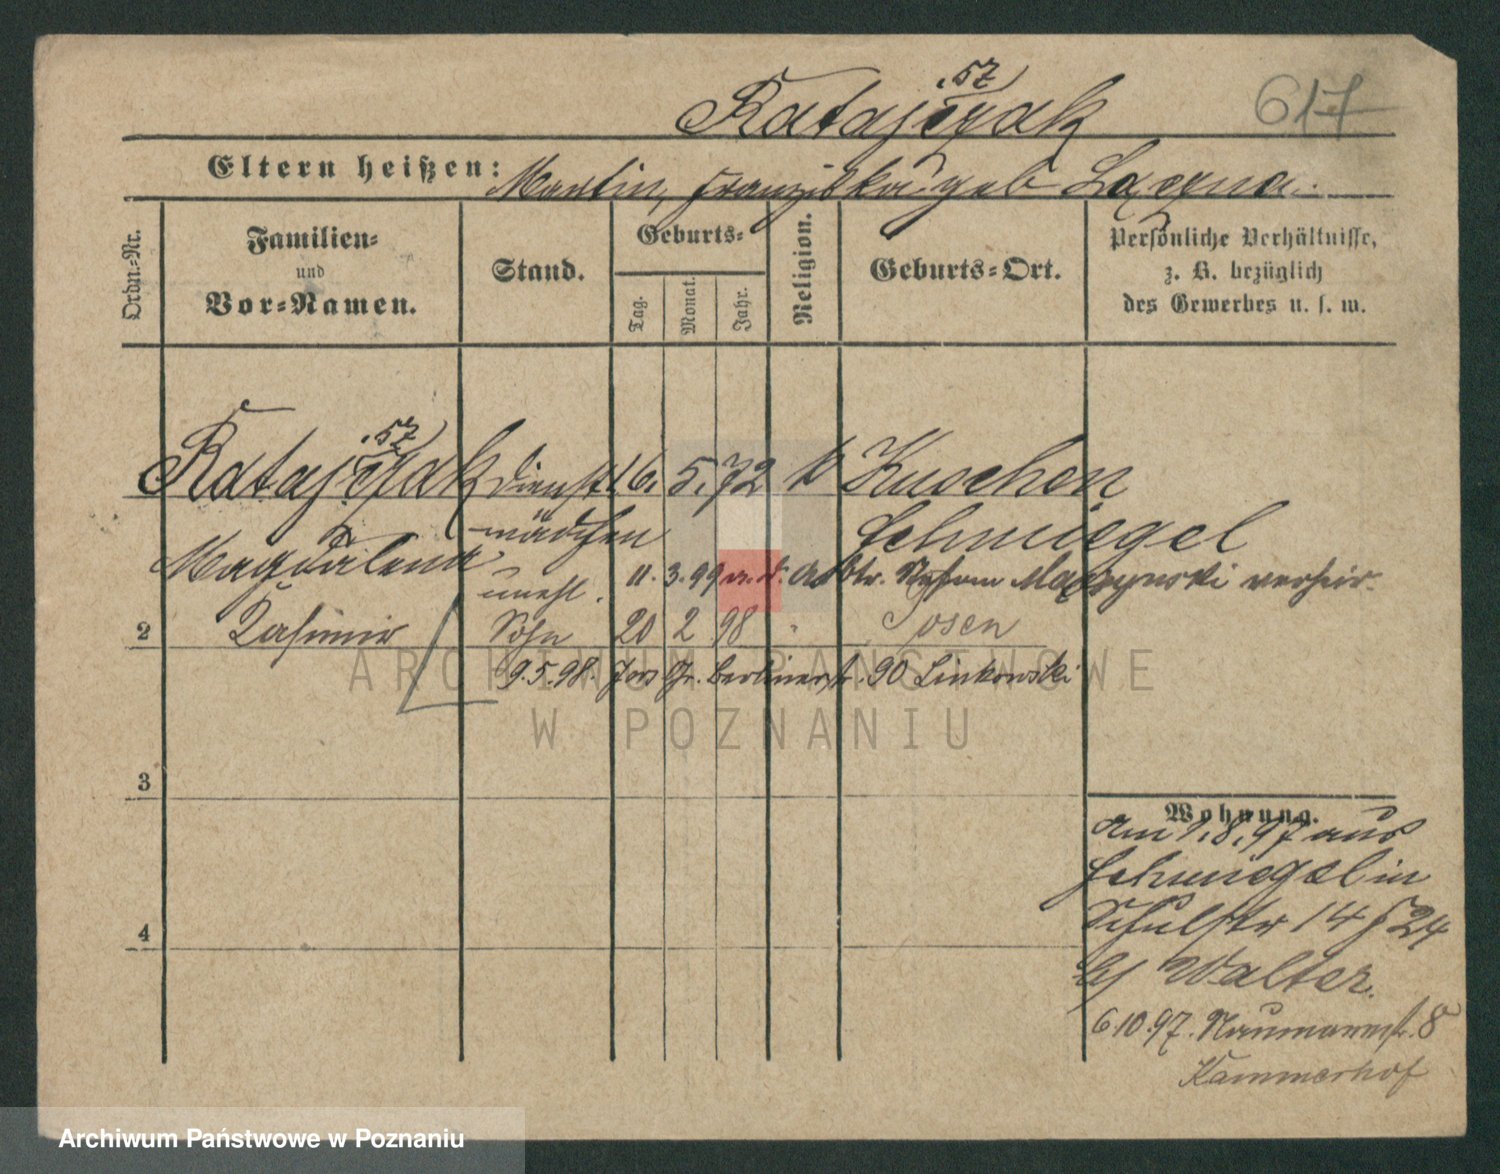 617
.sz
Ratajczak
Eltern heißen: Martin, Franziska geb
Ordn.-Nr.
Familien-
und
Vor-Namen.
Stand.
Geburts-
Tag.
Monat.
Jahr.
Religion.
Geburts-Ort.
Persönliche Verhältnisse,
z. B. bezüglich
des Gewerbes u. s. w.
.sz
Ratajczak Dienst 16. 5. 72 k Kuschen
mädchen Schmiegel
Magdalena
11. 3. 99 verheir.
unehl.
2 Kasimir Sohn 20 2 98 " Posen
9.5.98. Gr. Berlinerstr. 90 Linkowski
ARCHIWUM PAŃSTWOWE
W POZNANIU
3
4
Wohnung.
am 1.8.97 aus
Schmiegel in
Schulstr 14
bei Walter.
6.10.97. Naumannstr. 8
Kämmerhof
Archiwum Państwowe w Poznaniu